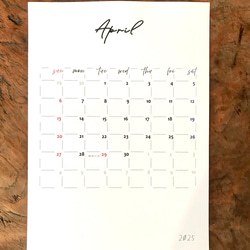 April
sun mon tue wed thu fri sat
1 2 3 4 5
6 7 8 9 10 11 12
13 14 15 16 17 18 19
20 21 22 23 24 25 26
27 28 29 30
2025